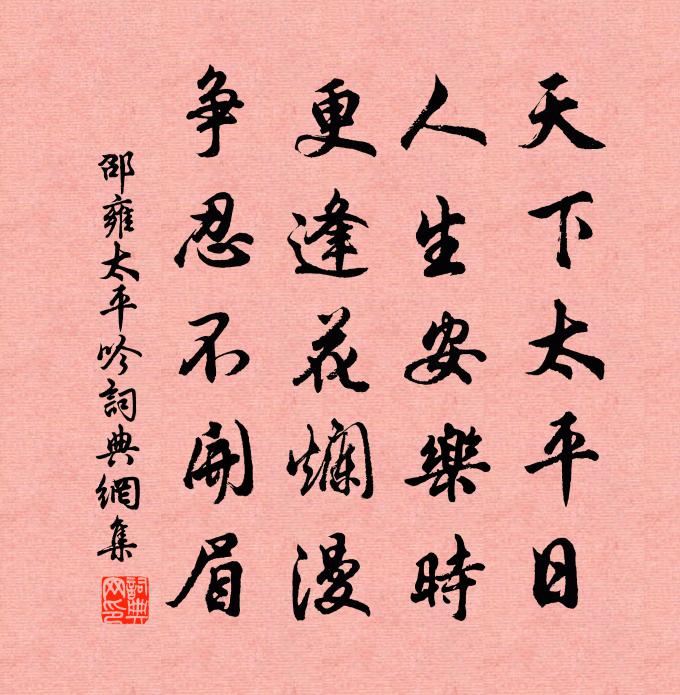 天下太平日
人生安樂時
更逢花爛漫
争忍不開眉
邵雍太平吟詞典網集
詞典網印